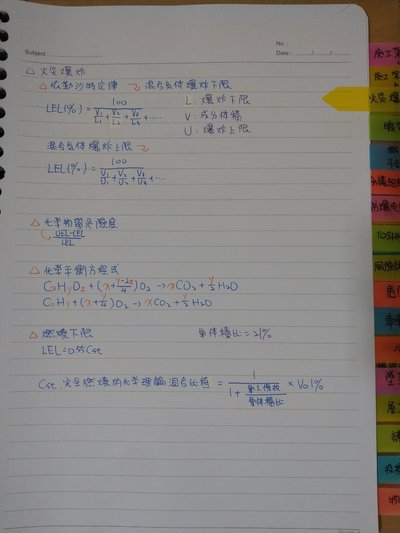 No. :
Subject :
Date : / /
△ 火災爆炸
△ 依勒沙特定律 → 混合气体爆炸下限
LEL(%) = 100 / (V₁/L₁ + V₂/L₂ + V₃/L₃ + ....
L : 爆炸下限
V : 成分体積
U : 爆炸上限
混合气体爆炸上限
LEL(%) = 100 / (V₁/U₁ + V₂/U₂ + V₃/U₃ + ....
△ 化学物質危險度
UEL-LEL / LEL
△ 化学平衡方程式
CxHyOz + (x + (y-2z)/4)O₂ → xCO₂ + y/2 H₂O
CxHy + (x + y/4)O₂ → xCO₂ + y/2 H₂O
△ 燃燒下限
氧体積比 = 21%
LEL = 0.55Cst
Cst : 完全燃燒的化学理論混合比值 = 1 / (1 + 氧气係数/氧体積比) × Vol%
火災爆
TOSHA
危